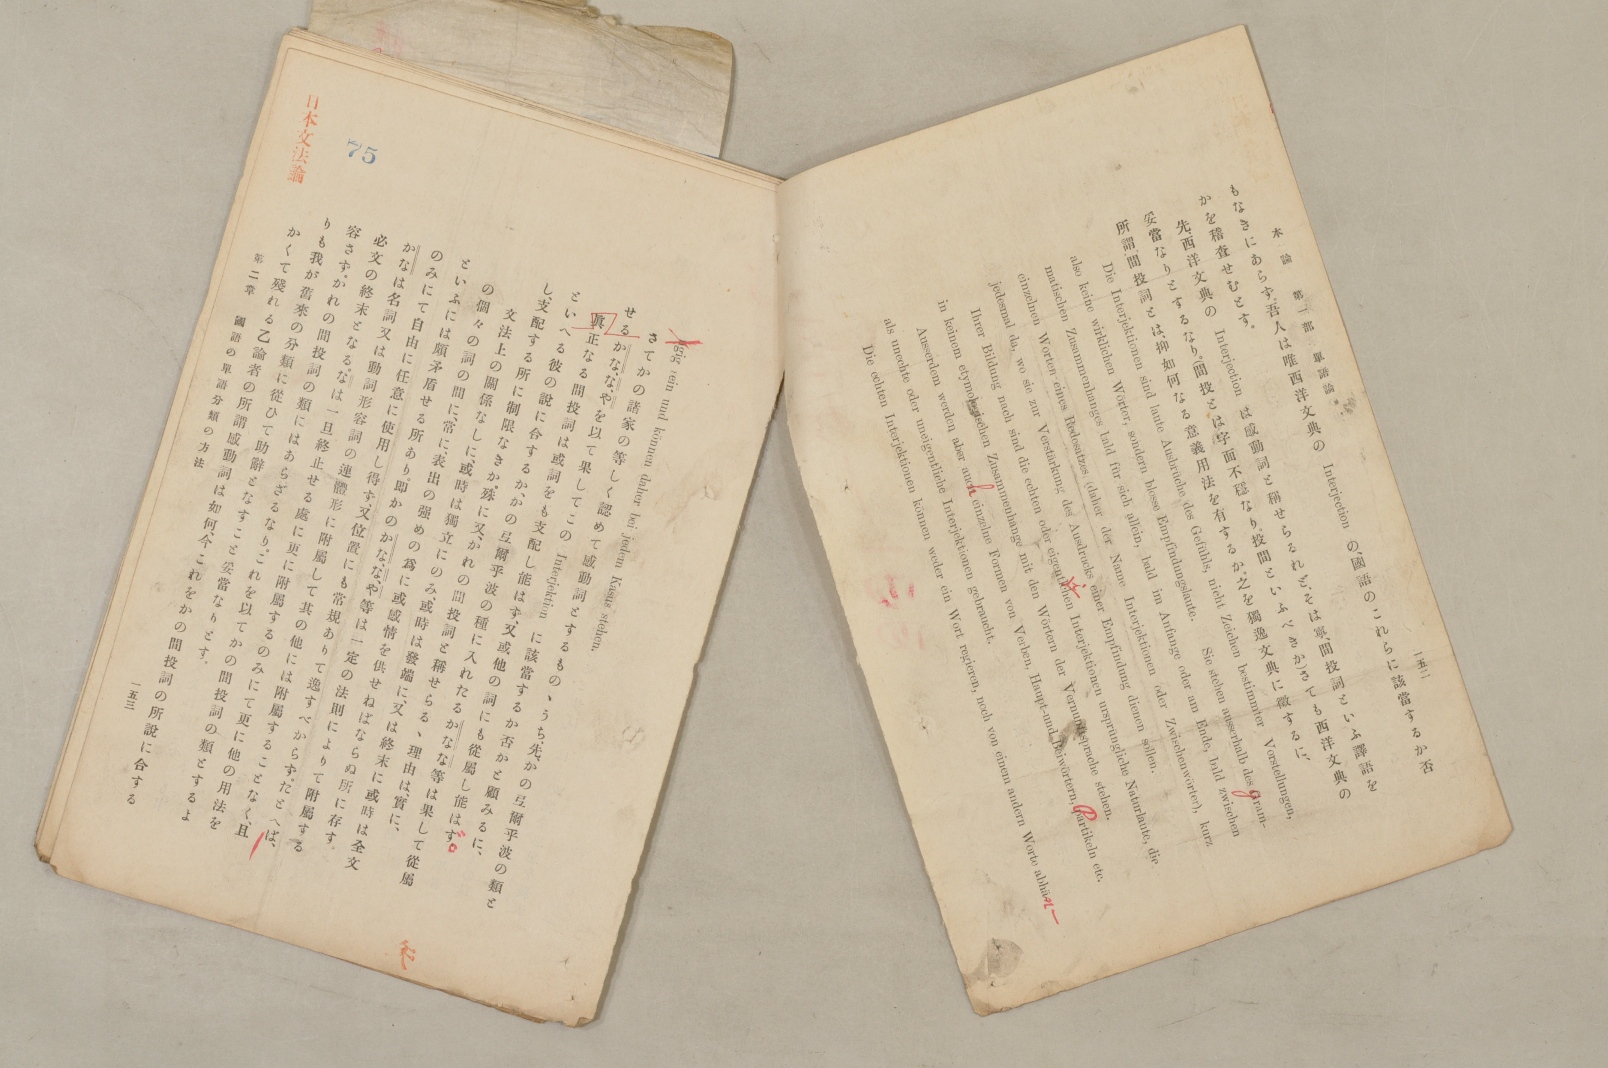 本論　第一部　單語論　一五二
もなきにあらず、吾人は唯西洋文典の Interjection の、國語のこれらに該當するか否
かを稽査せむとす。
先、西洋文典の Interjection は感動詞と稱せらるれど、そは寧、間投詞といふ譯語を
妥當なりとするなり。間投とは字面不穩なり。投間といふべきか。さても西洋文典の
所謂間投詞とは抑如何なる意義用法を有するか。之を獨逸文典に徵するに、
Die Interjektionen sind laute Ausbrüche des Gefühls, nicht Zeichen bestimmter Vorstellungen,
also keine wirklichen Wörter, sondern blosse Empfindungslaute. Sie stehen ausserhalb des gram-
matischen Zusammenhanges bald für sich allein, bald im Anfange oder am Ende, bald zwischen
einzelnen Worten eines Redesatzes (daher der Name Interjektionen oder Zwischenwörter), kurz
jedesmal da, wo sie zur Verstärkung des Ausdrucks einer Empfindung dienen sollen.
Ihrer Bildung nach sind die echten oder eigentlichen Interjektionen ursprüngliche Naturlaute, die
in keinem etymologischen Zusammenhange mit den Wörtern der Vernunftsprache stehen.
Ausserdem werden aber auch einzelne Formen von Verben, Haupt-und Beiwörtern, Partikeln etc.
als unechte oder uneigentliche Interjektionen gebraucht.
Die echten Interjektionen können weder ein Wort regieren, noch von einem andern Worte abhän-
gig sein und können daher bei jedem Kasus stehen.
さてかの諸家の等しく認めて感動詞とするものゝうち、先、かの弖爾乎波の類と
せるかな、な、やを以て果してこの Interjektion に該當するか否かと顧みるに、
眞正なる間投詞は或詞をも支配し能はず、又或他の詞にも從屬し能はず。
といへる彼の說に合するか、かの弖爾乎波の種に入れたるかな、な等は果して從屬
し、支配する所に制限なきか。殊に又、かれの間投詞と稱せらるゝ理由は、實に、
文法上の關係なしに、或時は獨立にのみ、或時は發端に、又は終末に或時は全文
の個々の詞の間に、常に、表出の强めの爲に或感情を供せねばならぬ所に存す。
といふには頗矛盾せる所あり。即かのかな、な、や等は一定の法則によりて附屬する
のみにて自由に任意に使用し得ず、又位置にも常規ありて逸すべからず。たとへば、
かなは名詞又は動詞形容詞の連體形に附屬して其の他には附屬することなく、且
必文の終末となる。なは一旦終止せる處に更に附屬するのみにて更に他の用法を
容さず。かれの間投詞の類にはあらざるなり。これを以てかの間投詞の類とするよ
りも我が舊來の分類に從ひて助辭となすこと妥當なりとす。
かくて殘れる乙論者の所謂感動詞は如何、今これをかの間投詞の所說に合する
第二章　國語の單語分類の方法　一五三
日本文法論
75